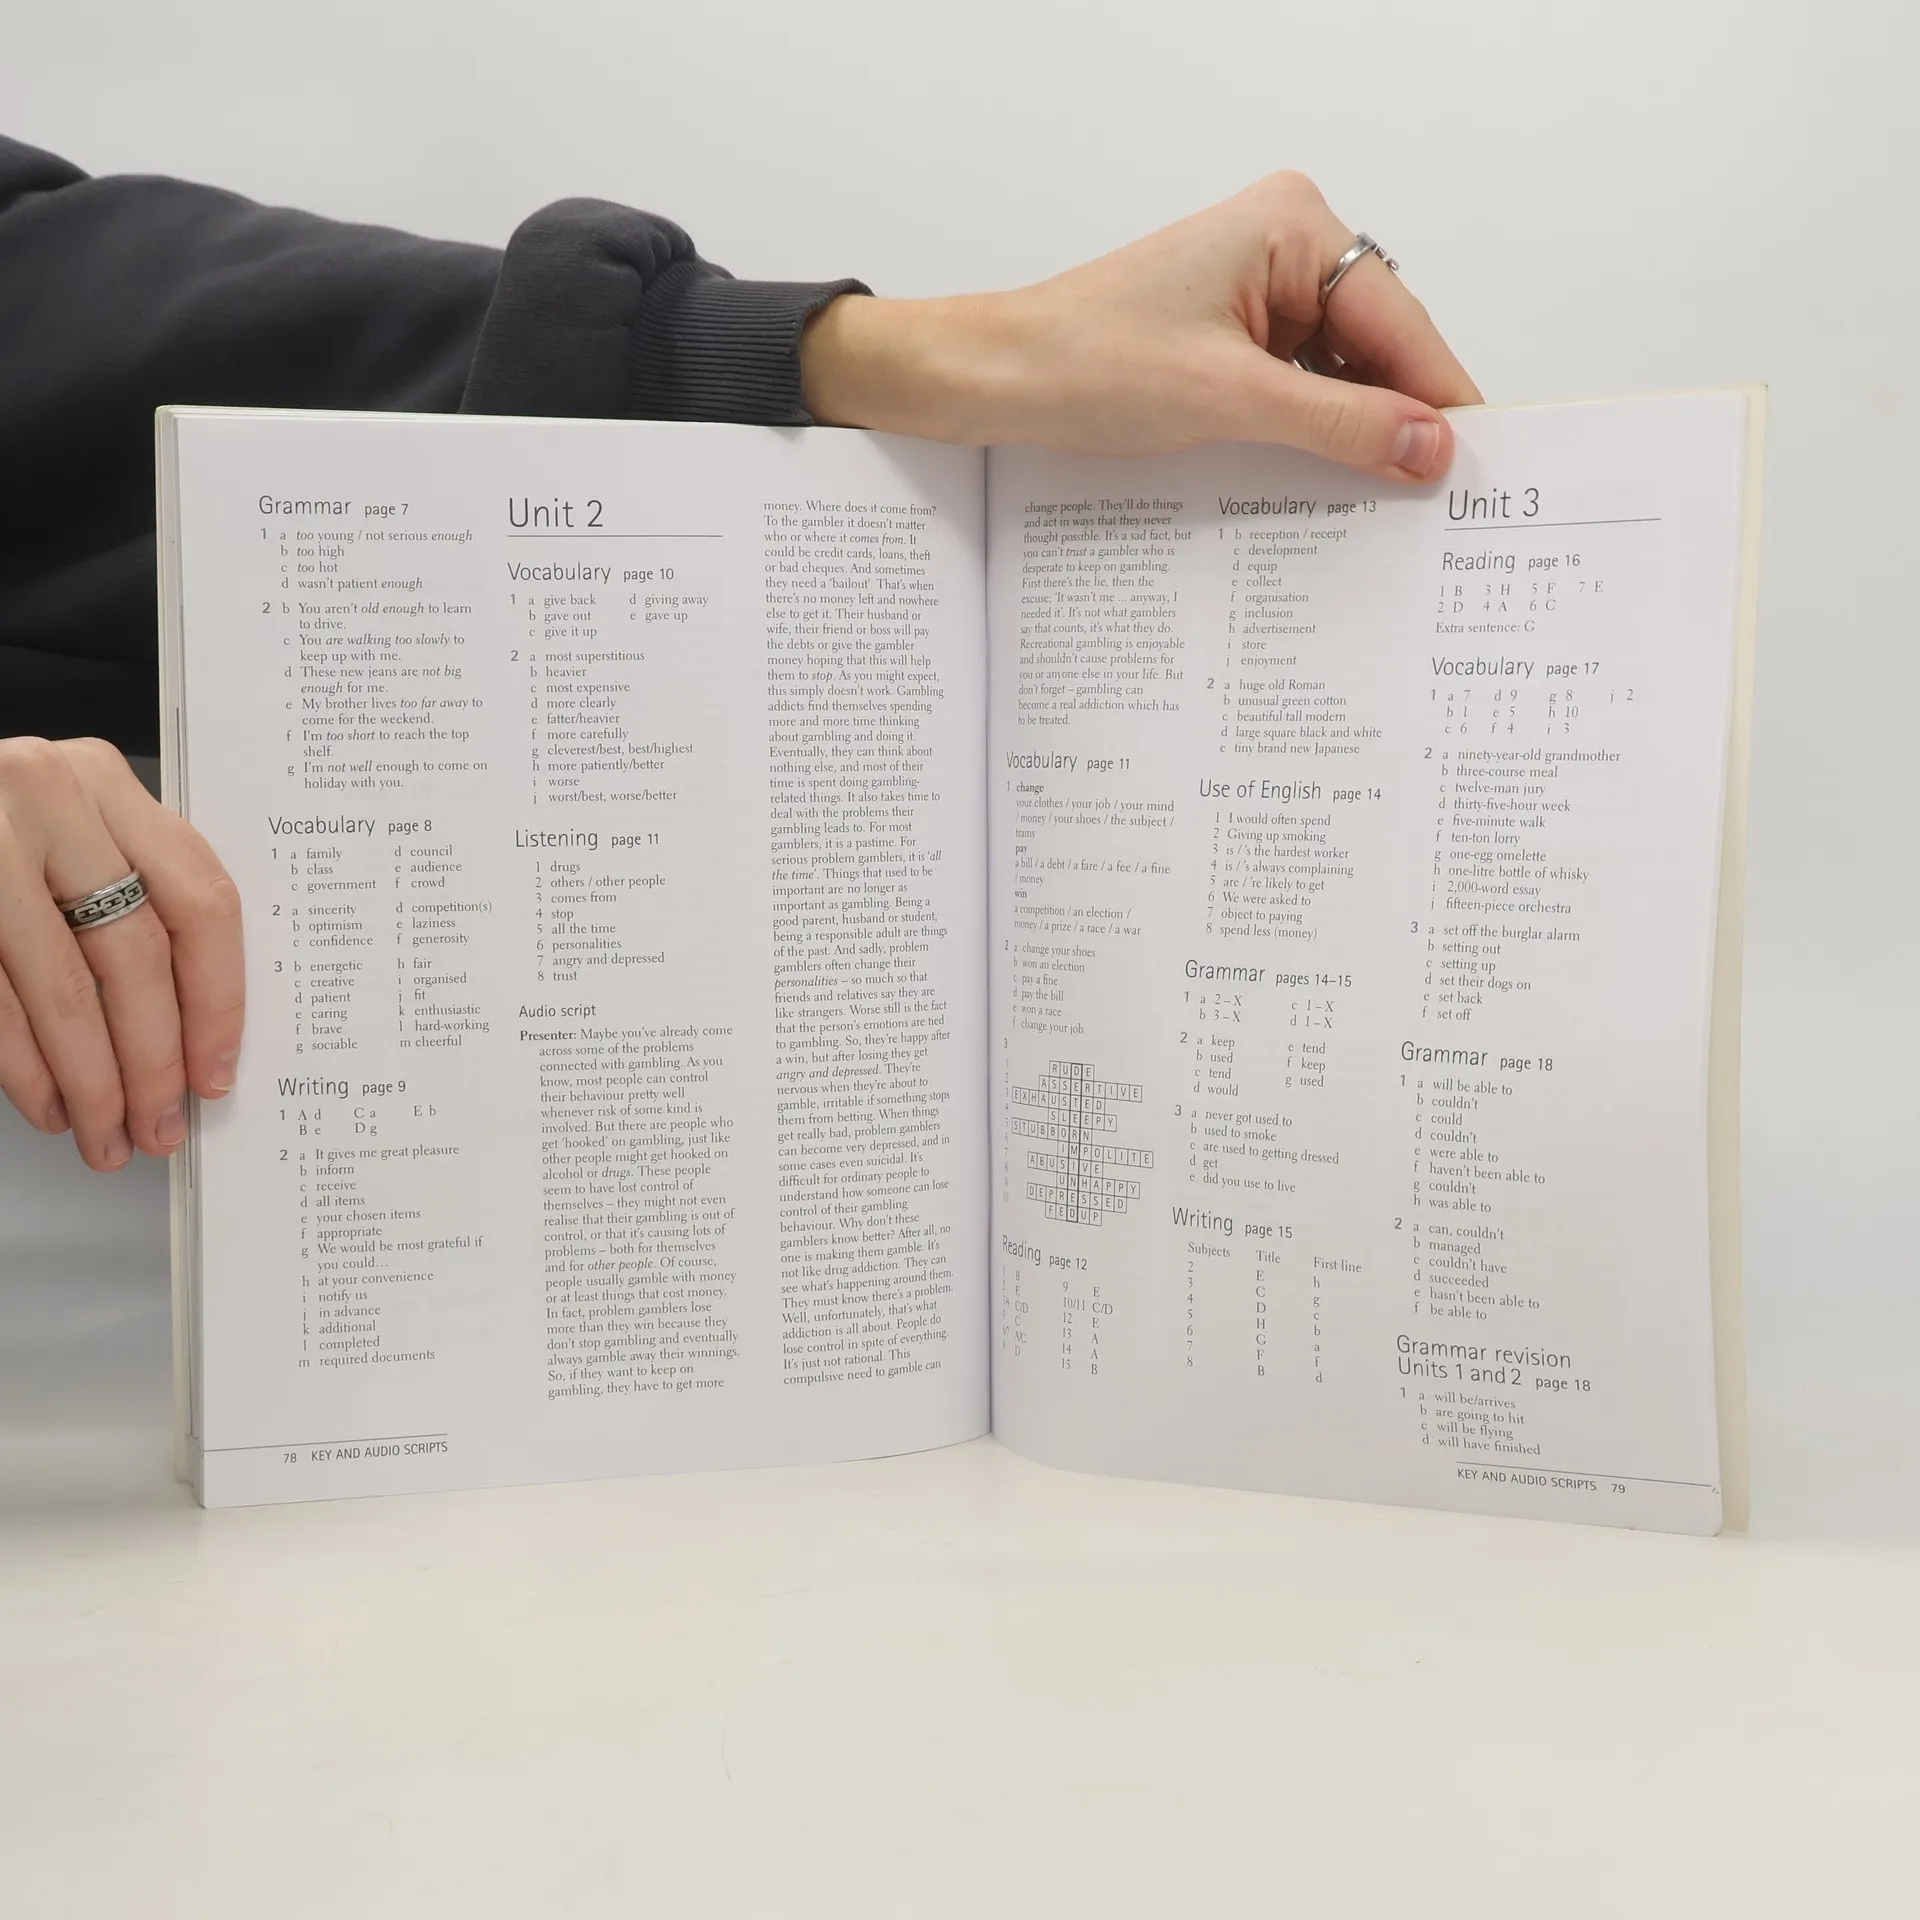 Grammar page 7
1 a too young / not serious enough
b too high
c too hot
d wasn't patient enough
2 b You aren't old enough to learn
to drive.
c You are walking too slowly to
keep up with me.
d These new jeans are not big
enough for me.
e My brother lives too far away to
come for the weekend.
f I'm too short to reach the top
shelf.
g I'm not well enough to come on
holiday with you.
Vocabulary page 8
1 a family d council
b class e audience
c government f crowd
2 a sincerity d competition(s)
b optimism e laziness
c confidence f generosity
3 b energetic h fair
c creative i organised
d patient j fit
e caring k enthusiastic
f brave l hard-working
g sociable m cheerful
Writing page 9
1 A d C a E b
B e D g
2 a It gives me great pleasure
b inform
c receive
d all items
e your chosen items
f appropriate
g We would be most grateful if
you could...
h at your convenience
i notify us
j in advance
k additional
l completed
m required documents
78 KEY AND AUDIO SCRIPTS
Unit 2
Vocabulary page 10
1 a give back d giving away
b gave out e gave up
c give it up
2 a most superstitious
b heavier
c most expensive
d more clearly
e fatter/heavier
f more carefully
g cleverest/best, best/highest
h more patiently/better
i worse
j worst/best, worse/better
Listening page 11
1 drugs
2 others / other people
3 comes from
4 stop
5 all the time
6 personalities
7 angry and depressed
8 trust
Audio script
Presenter: Maybe you've already come
across some of the problems
connected with gambling. As you
know, most people can control
their behaviour pretty well
whenever risk of some kind is
involved. But there are people who
get 'hooked' on gambling, just like
other people might get hooked on
alcohol or drugs. These people
seem to have lost control of
themselves – they might not even
realise that their gambling is out of
control, or that it's causing lots of
problems – both for themselves
and for other people. Of course,
people usually gamble with money
or at least things that cost money.
In fact, problem gamblers lose
more than they win because they
don't stop gambling and eventually
always gamble away their winnings.
So, if they want to keep on
gambling, they have to get more
money. Where does it come from?
To the gambler it doesn't matter
who or where it comes from. It
could be credit cards, loans, theft
or bad cheques. And sometimes
they need a 'bailout'. That's when
there's no money left and nowhere
else to get it. Their husband or
wife, their friend or boss will pay
the debts or give the gambler
money hoping that this will help
them to stop. As you might expect,
this simply doesn't work. Gambling
addicts find themselves spending
more and more time thinking
about gambling and doing it.
Eventually, they can think about
nothing else, and most of their
time is spent doing gambling-
related things. It also takes time to
deal with the problems their
gambling leads to. For most
gamblers, it is a pastime. For
serious problem gamblers, it is 'all
the time'. Things that used to be
important are no longer as
important as gambling. Being a
good parent, husband or student,
being a responsible adult are things
of the past. And sadly, problem
gamblers often change their
personalities – so much so that
friends and relatives say they are
like strangers. Worse still is the fact
that the person's emotions are tied
to gambling. So, they're happy after
a win, but after losing they get
angry and depressed. They're
nervous when they're about to
gamble, irritable if something stops
them from betting. When things
get really bad, problem gamblers
can become very depressed, and in
some cases even suicidal. It's
difficult for ordinary people to
understand how someone can lose
control of their gambling
behaviour. Why don't these
gamblers know better? After all, no
one is making them gamble. It's
not like drug addiction. They can
see what's happening around them.
They must know there's a problem.
Well, unfortunately, that's what
addiction is all about. People do
lose control in spite of everything.
It's just not rational. This
compulsive need to gamble can
change people. They'll do things
and act in ways that they never
thought possible. It's a sad fact, but
you can't trust a gambler who is
desperate to keep on gambling.
First there's the lie, then the
excuse; 'It wasn't me ... anyway, I
needed it'. It's not what gamblers
say that counts, it's what they do.
Recreational gambling is enjoyable
and shouldn't cause problems for
you or anyone else in your life. But
don't forget – gambling can
become a real addiction which has
to be treated.
Vocabulary page 11
1 change
your clothes / your job / your mind
/ money / your shoes / the subject /
trains
pay
a bill / a debt / a fare / a fee / a fine
/ money
win
a competition / an election /
money / a prize / a race / a war
2 a change your shoes
b won an election
c pay a fine
d pay the bill
e won a race
f change your job
3
RUDE
ASSERTIVE
EXHAUSTED
SLEEPY
STUBBORN
IMPOLITE
ABUSIVE
UNHAPPY
DEPRESSED
FEDUP
Reading page 12
B 9 E
E 10/11 C/D
C/D 12 E
C 13 A
14 A
D 15 B
Vocabulary page 13
1 b reception / receipt
c development
d equip
e collect
f organisation
g inclusion
h advertisement
i store
j enjoyment
2 a huge old Roman
b unusual green cotton
c beautiful tall modern
d large square black and white
e tiny brand new Japanese
Use of English page 14
1 I would often spend
2 Giving up smoking
3 is / 's the hardest worker
4 is / 's always complaining
5 are / 're likely to get
6 We were asked to
7 object to paying
8 spend less (money)
Grammar pages 14–15
1 a 2 – X c 1 – X
b 3 – X d 1 – X
2 a keep e tend
b used f keep
c tend g used
d would
3 a never got used to
b used to smoke
c are used to getting dressed
d get
e did you use to live
Writing page 15
Subjects Title First line
2 E h
3 C g
4 D c
5 H b
6 G a
7 F f
8 B d
Unit 3
Reading page 16
1 B 3 H 5 F 7 E
2 D 4 A 6 C
Extra sentence: G
Vocabulary page 17
1 a 7 d 9 g 8 j 2
b 1 e 5 h 10
c 6 f 4 i 3
2 a ninety-year-old grandmother
b three-course meal
c twelve-man jury
d thirty-five-hour week
e five-minute walk
f ten-ton lorry
g one-egg omelette
h one-litre bottle of whisky
i 2,000-word essay
j fifteen-piece orchestra
3 a set off the burglar alarm
b setting out
c setting up
d set their dogs on
e set back
f set off
Grammar page 18
1 a will be able to
b couldn't
c could
d couldn't
e were able to
f haven't been able to
g couldn't
h was able to
2 a can, couldn't
b managed
c couldn't have
d succeeded
e hasn't been able to
f be able to
Grammar revision
Units 1 and 2 page 18
1 a will be/arrives
b are going to hit
c will be flying
d will have finished
KEY AND AUDIO SCRIPTS 79